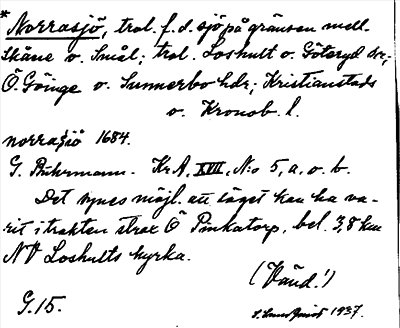 * Norrasjö, trol. f. d. sjö på gränsen mell.
Skåne o. Smål; trol. Loshult o. Göteryd snr;
Ö. Göinge o. Sunnerbo hdr; Kristianstads
o. Kronob. l.
norrasiö 1684.
G. Buhrmann. Kr.A, XVII, N:o 5, a, o. b.
Det synes möjl. att läget kan ha va-
rit i trakten strax Ö Pinkatorp, bel. 3,8 km
NV Loshults kyrka.
(Vänd!)
G. 15.
1937.